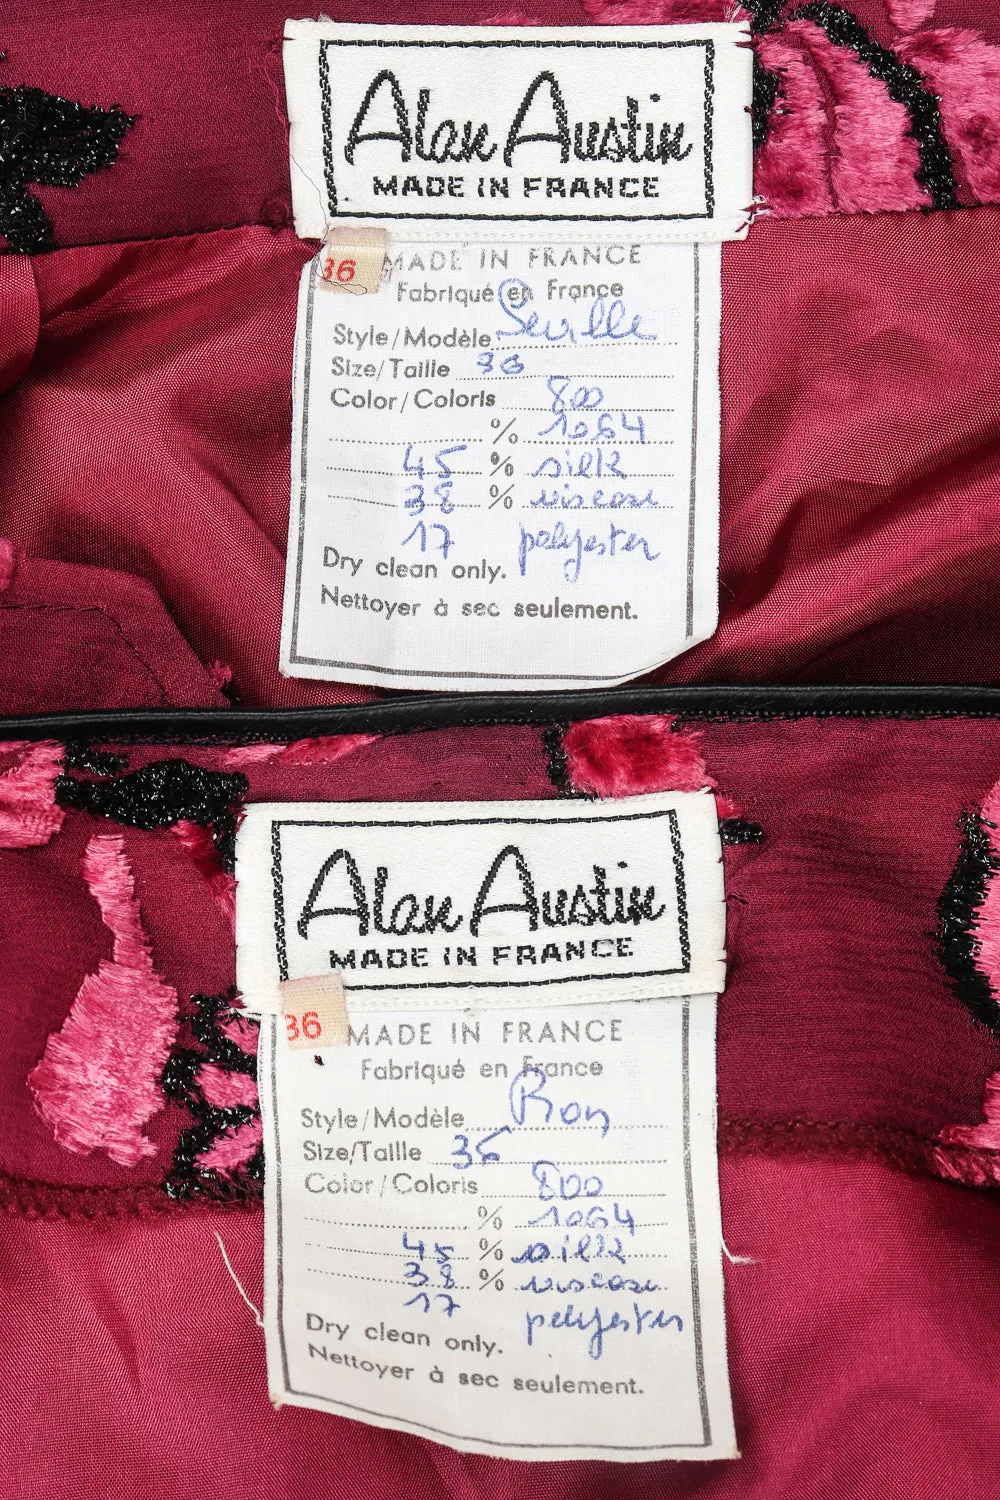 Alan Austin
MADE IN FRANCE
36 MADE IN FRANCE
Fabriqué en France
Style/Modèle Seville
Size/Taille 36
Color/Coloris 800
% 1064
45 % silk
38 % viscose
17 polyester
Dry clean only.
Nettoyer à sec seulement.
Alan Austin
MADE IN FRANCE
36 MADE IN FRANCE
Fabriqué en France
Style/Modèle
Size/Taille 36
Color/Coloris 800
% 1064
45 % silk
38 % viscose
17 polyester
Dry clean only.
Nettoyer à sec seulement.